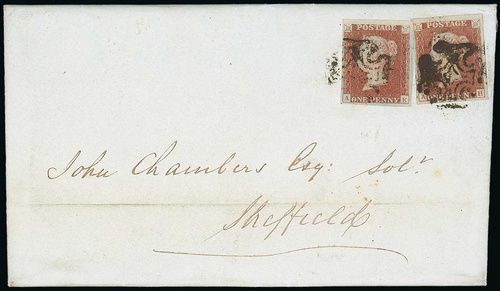 POSTAGE POSTAGE
A ONE PENNY A H
John Chambers Esq: Solr
Sheffield